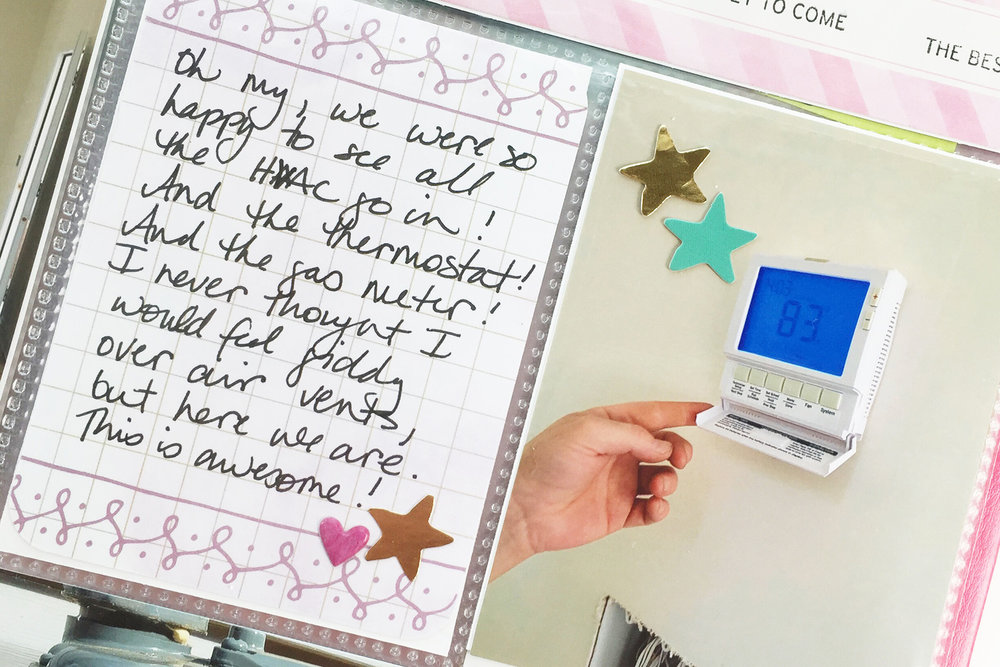 ET TO COME
THE BES
Oh my, we were so
happy to see all
the HVAC go in!
And the thermostat!
And the gas meter!
I never thought I
would feel giddy
over air vents,
but here we are.
This is awesome!
83
Fan
System